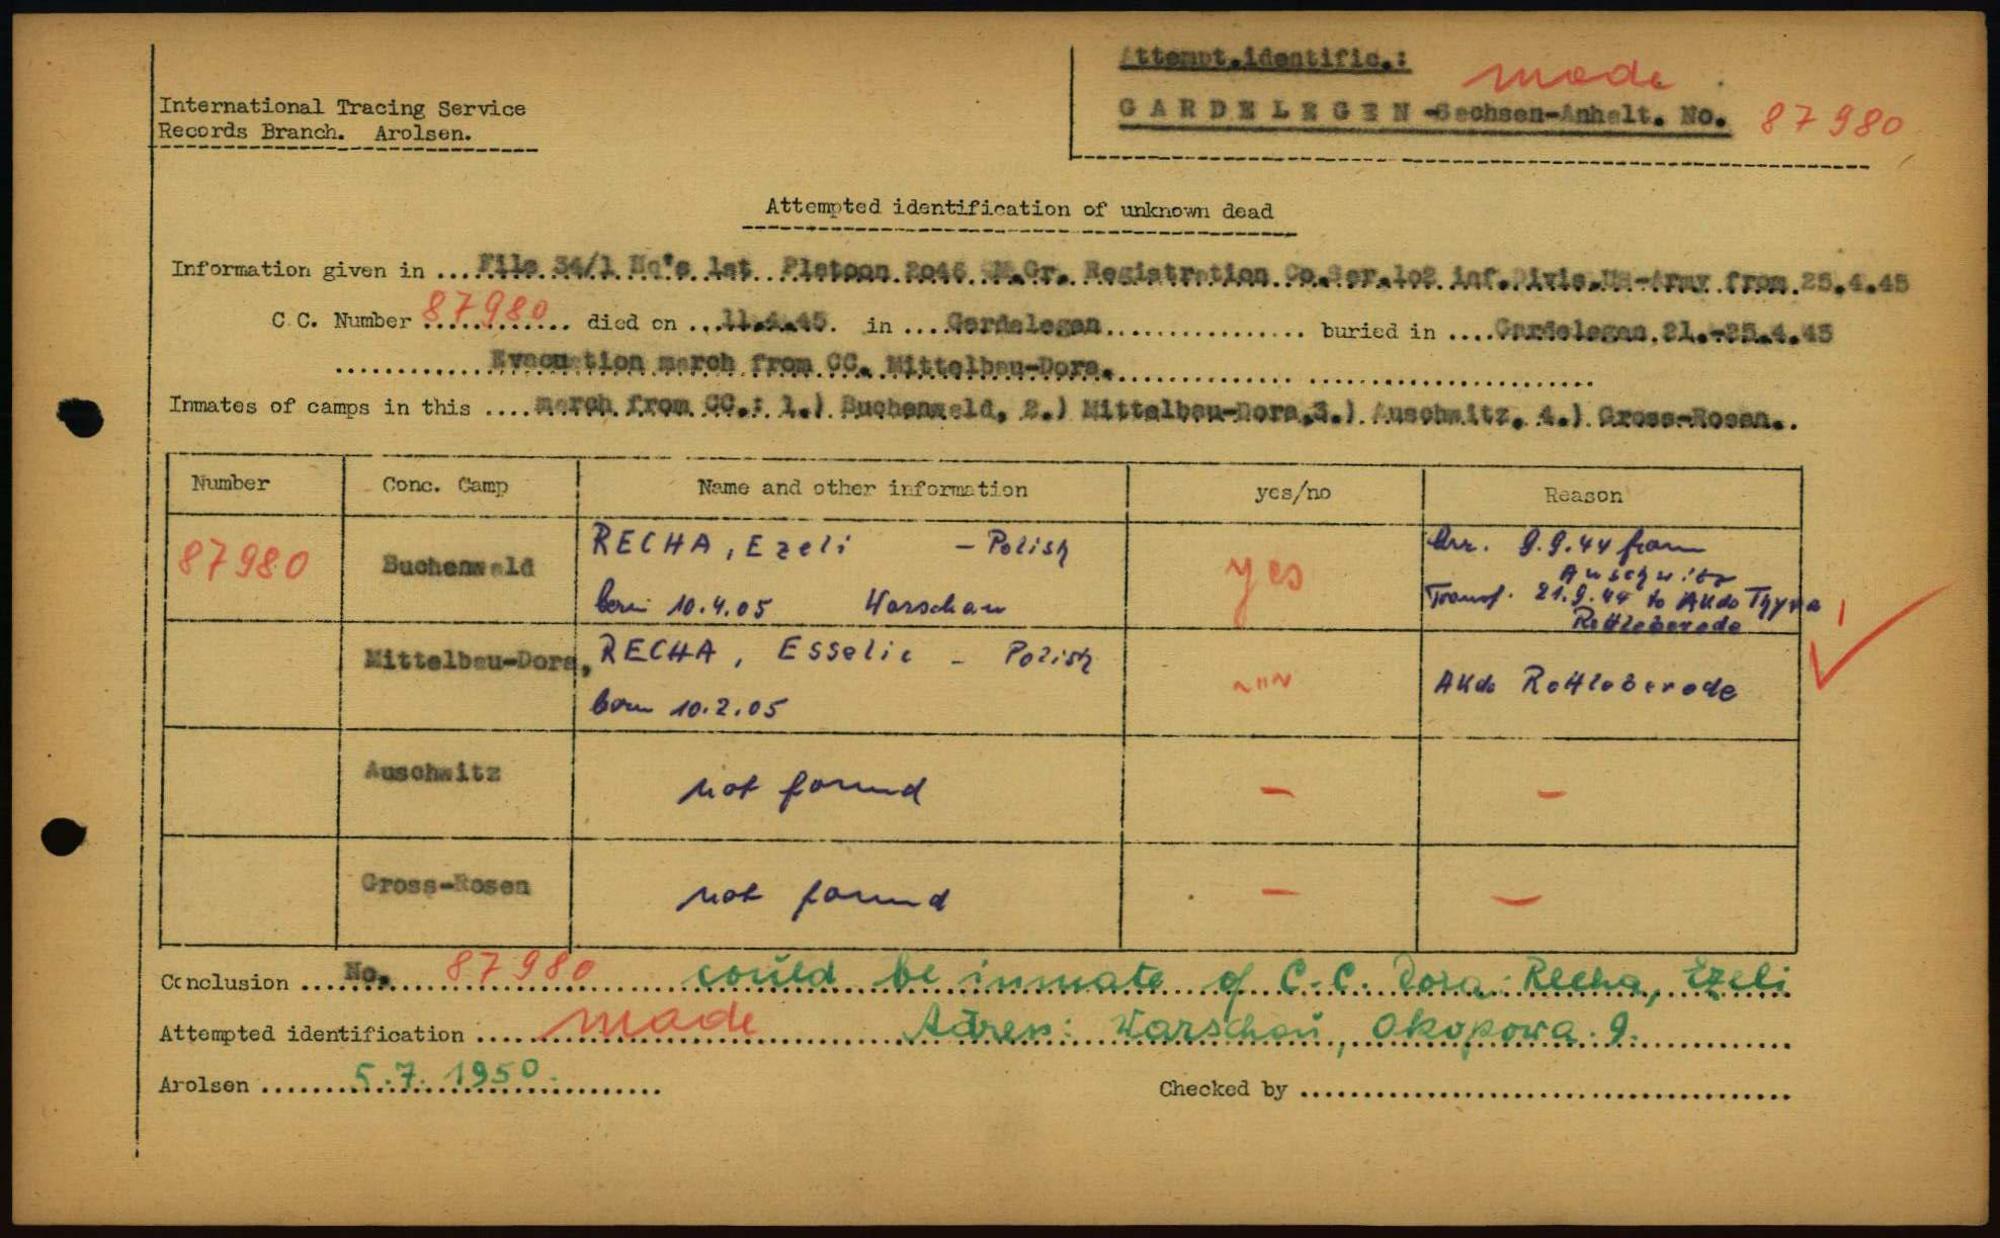 Attempt.identific.: made
International Tracing Service
Records Branch. Arolsen.
GARDELEGEN -Sachsen-Anhalt. No. 87980
Attempted identification of unknown dead
Information given in ... File 54/1 Hq's 1st Platoon 2046 M.Gr. Registration Co.Ser.102 inf.Divis.US-Army from 25.4.45
C C. Number 87980 died on ... 11.4.45. in .... Gardelegen ... buried in .... Gardelegen 21.-25.4.45
Evacuation march from CC. Mittelbau-Dora.
Inmates of camps in this .... march from CC.: 1.) Buchenwald, 2.) Mittelbau-Dora,3.) Auschwitz, 4.) Gross-Rosen..
Number Conc. Camp Name and other information yes/no Reason
87980 Buchenwald RECHA, Ezeli - Polish yes Arr. 9.9.44 from
Auschwitz
born 10.4.05 Warschau Transf. 21.9.44 to AKdo Thyra
Rottleberode
Mittelbau-Dora, RECHA, Esselie - Polish ~"~ AKdo Rottleberode
born 10.2.05
Auschwitz not found - -
Gross-Rosen not found - -
Conclusion ... No. 87980 could be inmate of C.C. Dora: Recha, Ezeli
Attempted identification ... made Adress: Warschau, Okopowa 9.
Arolsen ... 5.7.1950. Checked by ...